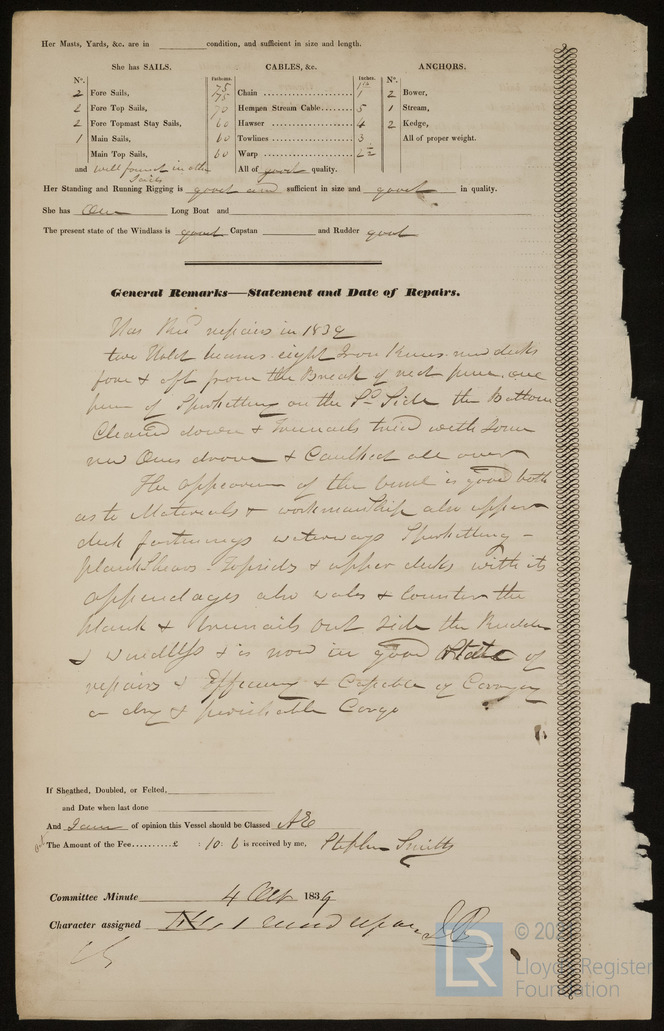 Her Masts, Yards, &c. are in condition, and sufficient in size and length.
She has SAILS. CABLES, &c. ANCHORS.
N°. Fathoms. Inches. N°.
2 Fore Sails, 75 Chain 1 2 Bower,
2 Fore Top Sails, 70 Hempen Stream Cable 5 1 Stream,
2 Fore Topmast Stay Sails, 60 Hawser 4 2 Kedge,
1 Main Sails, 60 Towlines 3 All of proper weight.
Main Top Sails, 60 Warp 2½
and well found in other Sails All of good quality.
Her Standing and Running Rigging is good and sufficient in size and good in quality.
She has One Long Boat and
The present state of the Windlass is good Capstan and Rudder good
General Remarks—Statement and Date of Repairs.
Has repairs in 1839
two Hold beams eight Iron Knees new decks
fore & aft from the Break of one
of Spirketting on the Side the Bottom
Cleaned down & Treenails tried with Some
new Ones drove & Caulked all over
The appearance of the is good both
as to Materials & workmanship also upper
deck fastenings waterways Spirketting
plank Shears Topsides & upper decks with its
appendages also wales & Counter the
plank & treenails out Side the Rudder
& Windlass & is now in good State of
repairs & Efficiency & Capable of Carrying
a dry & perishable Cargo
If Sheathed, Doubled, or Felted,
and Date when last done
And I am of opinion this Vessel should be Classed AE
The Amount of the Fee £ : 10 : 6 is received by me, Stephen Smith
Committee Minute 4 1839
Character assigned 1
LR
© 20
Lloyd's Register
Foundation